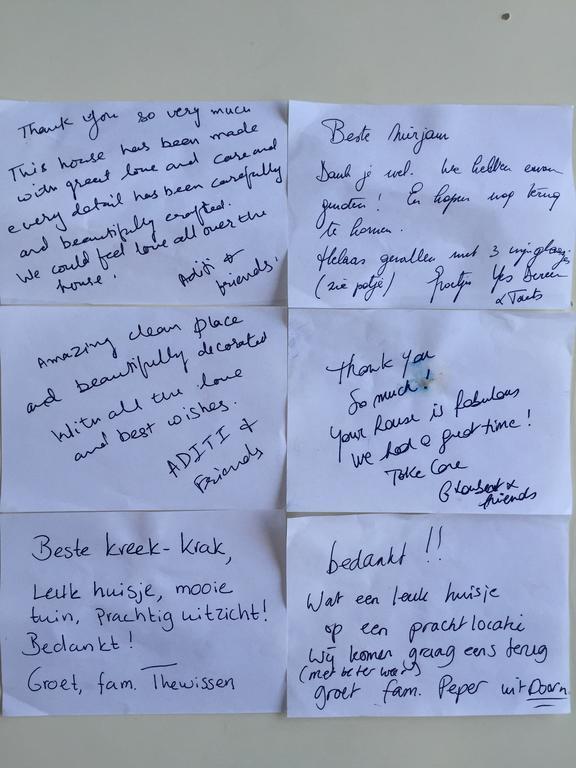 Thank you so very much
This house has been made
with great love and care and
every detail has been carefully
and beautifully crafted.
We could feel love all over the
house!
Aditi &
friends!
Beste Mirjam
Dank je wel. We hebben ervan
genoten! En hopen nog terug
te komen.
Helaas gevallen met 3 wijnglaasjes
(zie potje) Groetjes
Amazing clean place
and beautifully decorated
With all the love
and best wishes.
ADITI &
Friends
Thank you
So much!
Your house is fabulous
We had a great time!
Take Care
&
friends
Beste kreek-krak,
Leuk huisje, mooie
tuin, Prachtig uitzicht!
Bedankt!
Groet, fam. Thewissen
bedankt!!
Wat een leuk huisje
op een prachtlocatie
Wij komen graag eens terug
(met beter weer)
groet fam. Peper uit Doorn